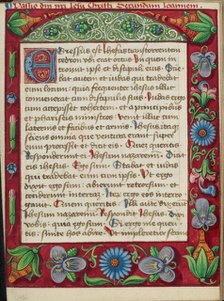 Passio dni nri ihu Cristi Secundum Joannem.
Egressus est Jhesus trans torrentem
cedron ubi erat ortus In quem in
troivit ipse et discipuli eius
autem et iudas qui tradebat
eum locum quia frequenter ihesus
cum discipulis suis
et phariseis ministros venit illuc cum
laternis et facibus et armis Jhesus itaque
sciens omnia que ventura erant super
eum processit et dixit eis Quem queritis
Responderunt ei Jhesum nazarenum Dicit
eis ihesus Ego sum Stabat autem et
iudas qui tradebat eum cum ipsis Ut ergo
dixit eis ego sum abierunt retrorsum et
ceciderunt in terram Iterum ergo
eos Quem queritis Illi autem dixerunt
Jhesum nazarenum Respondit Jhesus
dixi vobis quia ego sum Si ergo me que
ritis sinite hos abire Ut impleretur sermo